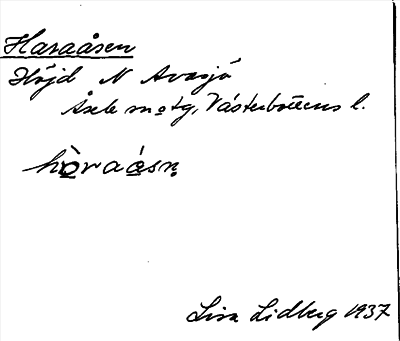 Haraåsen
Höjd N Avasjö
Åsele sn o tg, Västerbottens l.
hòraåsn̥
Lisa Lidberg 1937